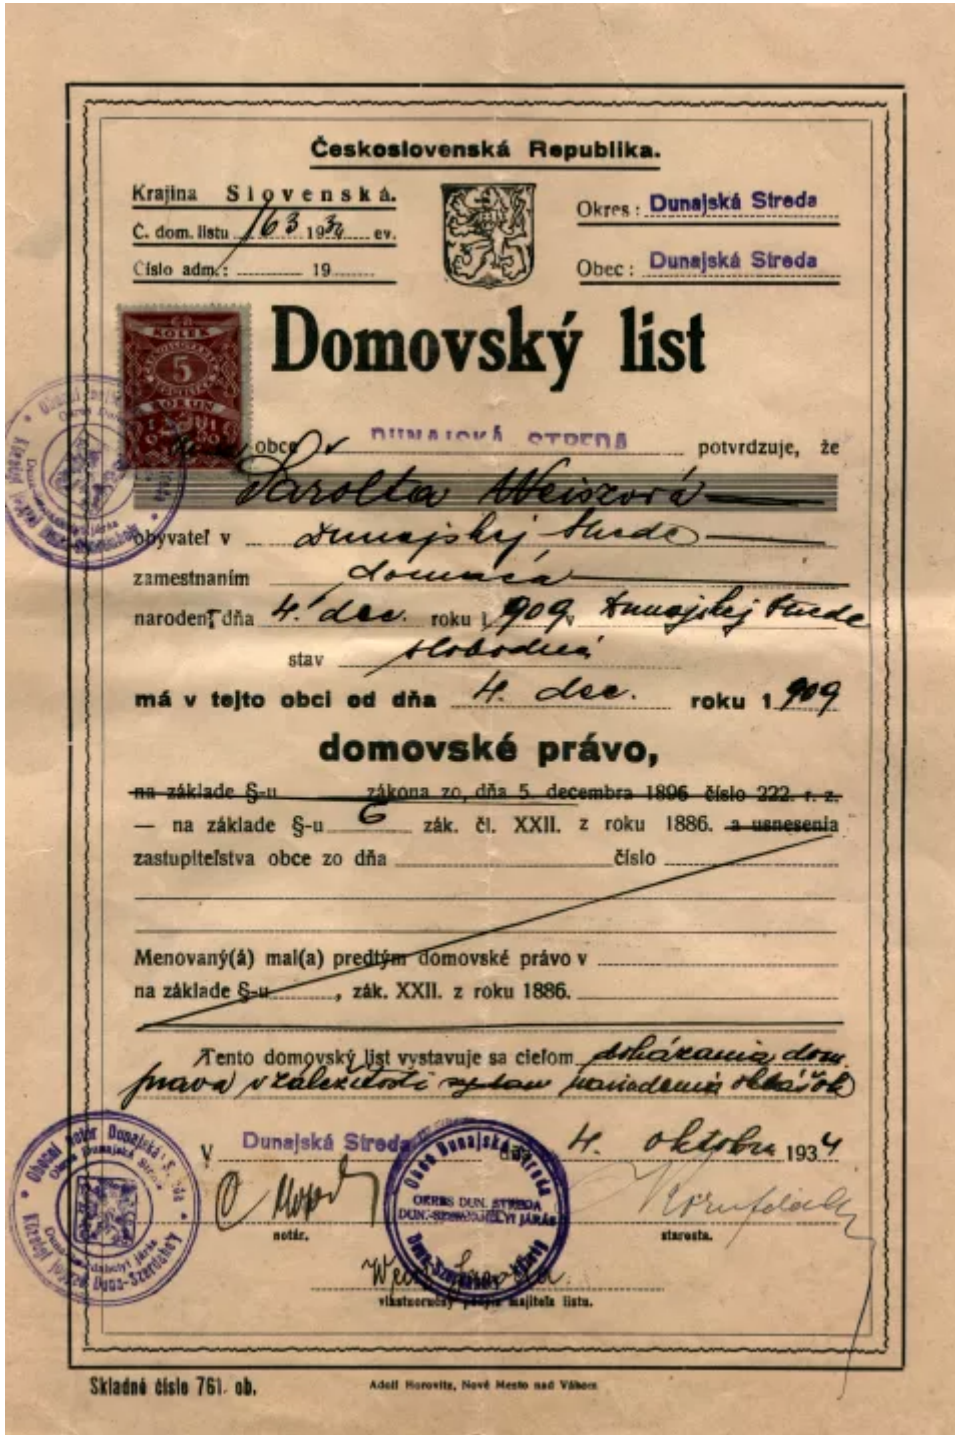 Československá Republika.
Krajina Slovenská.
Č. dom. listu 163 1934 ev.
Číslo adm.: 19
Okres: Dunajská Streda
Obec: Dunajská Streda
Domovský list
KOLEK
5
KORUN
obce DUNAJSKÁ STREDA potvrdzuje, že
Šarolta Weiszová
obyvateľ v Dunajskej Strede
zamestnaním domáca
narodený dňa 4. dec. roku 1909 v Dunajskej Strede
stav slobodná
má v tejto obci od dňa 4. dec. roku 1909
domovské právo,
na základe §-u zákona zo dňa 5. decembra 1896 číslo 222. r. z.
— na základe §-u 6 zák. čl. XXII. z roku 1886. a usnesenia
zastupiteľstva obce zo dňa číslo
Menovaný(á) mal(a) predtým domovské právo v
na základe §-u , zák. XXII. z roku 1886.
Tento domovský list vystavuje sa cieľom dom.
práva v záležitosti
V Dunajská Streda dňa 4. oktobra 1934
notár.
starosta.
vlastnoručný podpis majiteľa listu.
Obecný notár Dunajská Streda
Obec Dunajská Streda
OKRES DUN. STREDA
DUN.-SZERDAHELYI JÁRÁS
Skladné číslo 761. ob.
Adolf Horovitz, Nové Mesto nad Váhom